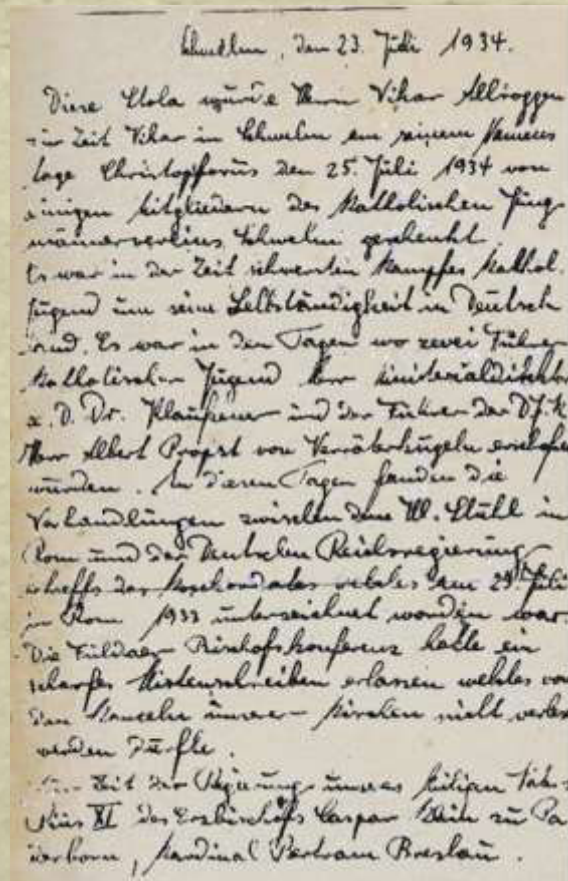 Schwelm, den 23. Juli 1934.
Diese Stola wurde Herrn Vikar Allroggen
zur Zeit Vikar in Schwelm an seinem Namens
tage Christopforus den 25. Juli 1934 von
einigen Mitgliedern des Katholischen Jung
männervereins Schwelm geschenkt.
Es war in der Zeit schwersten Kampfes Kathol.
Jugend um seine Selbständigkeit in Deutsch
land. Es war in den Tagen wo zwei Führer
Katholischer Jugend Herr Ministerialdirektor
a. D. Dr. Klausener und der Führer der DJK
Herr Albert Propst von Verräterkugeln erschossen
wurden. In diesen Tagen fanden die
Verhandlungen zwischen dem Hl. Stuhl in
Rom und der Deutschen Reichsregierung
betreffs des Konkordates welches am 29. Juli
in Rom 1933 unterzeichnet worden war.
Die Fuldaer Bischofskonferenz hatte ein
scharfes Hirtenschreiben erlassen welches von
den Kanzeln unserer Kirchen nicht verlesen
werden durfte.
Zur Zeit der Regierung unseres
Pius XI des Erzbischofs Caspar Klein zu Pa
derborn, Kardinal Bertram Breslau.